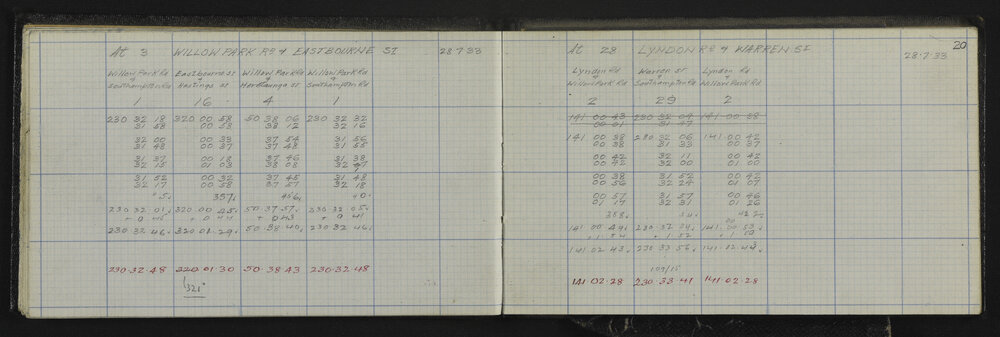 At 3 WILLOW PARK RD & EASTBOURNE ST 28.7.33
Willow Park Rd Eastbourne St Willow Park Rd Willow Park Rd
Southampton Rd Hastings St Southampton Rd
1 16 4 1
230 32 18 320 00 58 50 38 06 230 32 32
31 58 00 53 38 12 32 16
32 00 00 33 37 54 31 56
31 48 00 37 37 48 31 55
31 37 00 18 37 46 31 38
32 15 01 03 38 08
31 52 00 32 37 45 31 48
32 17 00 58 37 57 32 18
357. 456.
230 32 01. 320 00 45. 50.37.57. 230 32 05.
+ 0 45 + 0 44 + 0 43 + 0 41
230 32 46. 320 01.29. 50 38 40. 230 32 46.
230.32.48 320.01.30 50.38.43 230.32.48
321°
20
At 28 LYNDON RD & WARREN ST 28.7.33
Lyndon Rd Warren St Lyndon Rd
Willow Park Rd Southampton Rd Willow Park Rd
2 29 2
141 00 43 230 32 04 141 00 38
00 01 31 47
141 00 38 230 32 06 141 00 42
00 38 31 33 00 37
00 42 32 11 00 42
00 42 32 00 01 00
00 38 31 52 00 42
00 56 32 24 01 07
00 57 31 57 00 46
01 17 32 31 01 26
358.
141 00 49. 230 32 04. 141.00 53.
1 54 + 1 52 + 1 50
141 02 43. 230 33 56. 141.02.43.
109/15
141.02.28 230 33.41 141.02.28